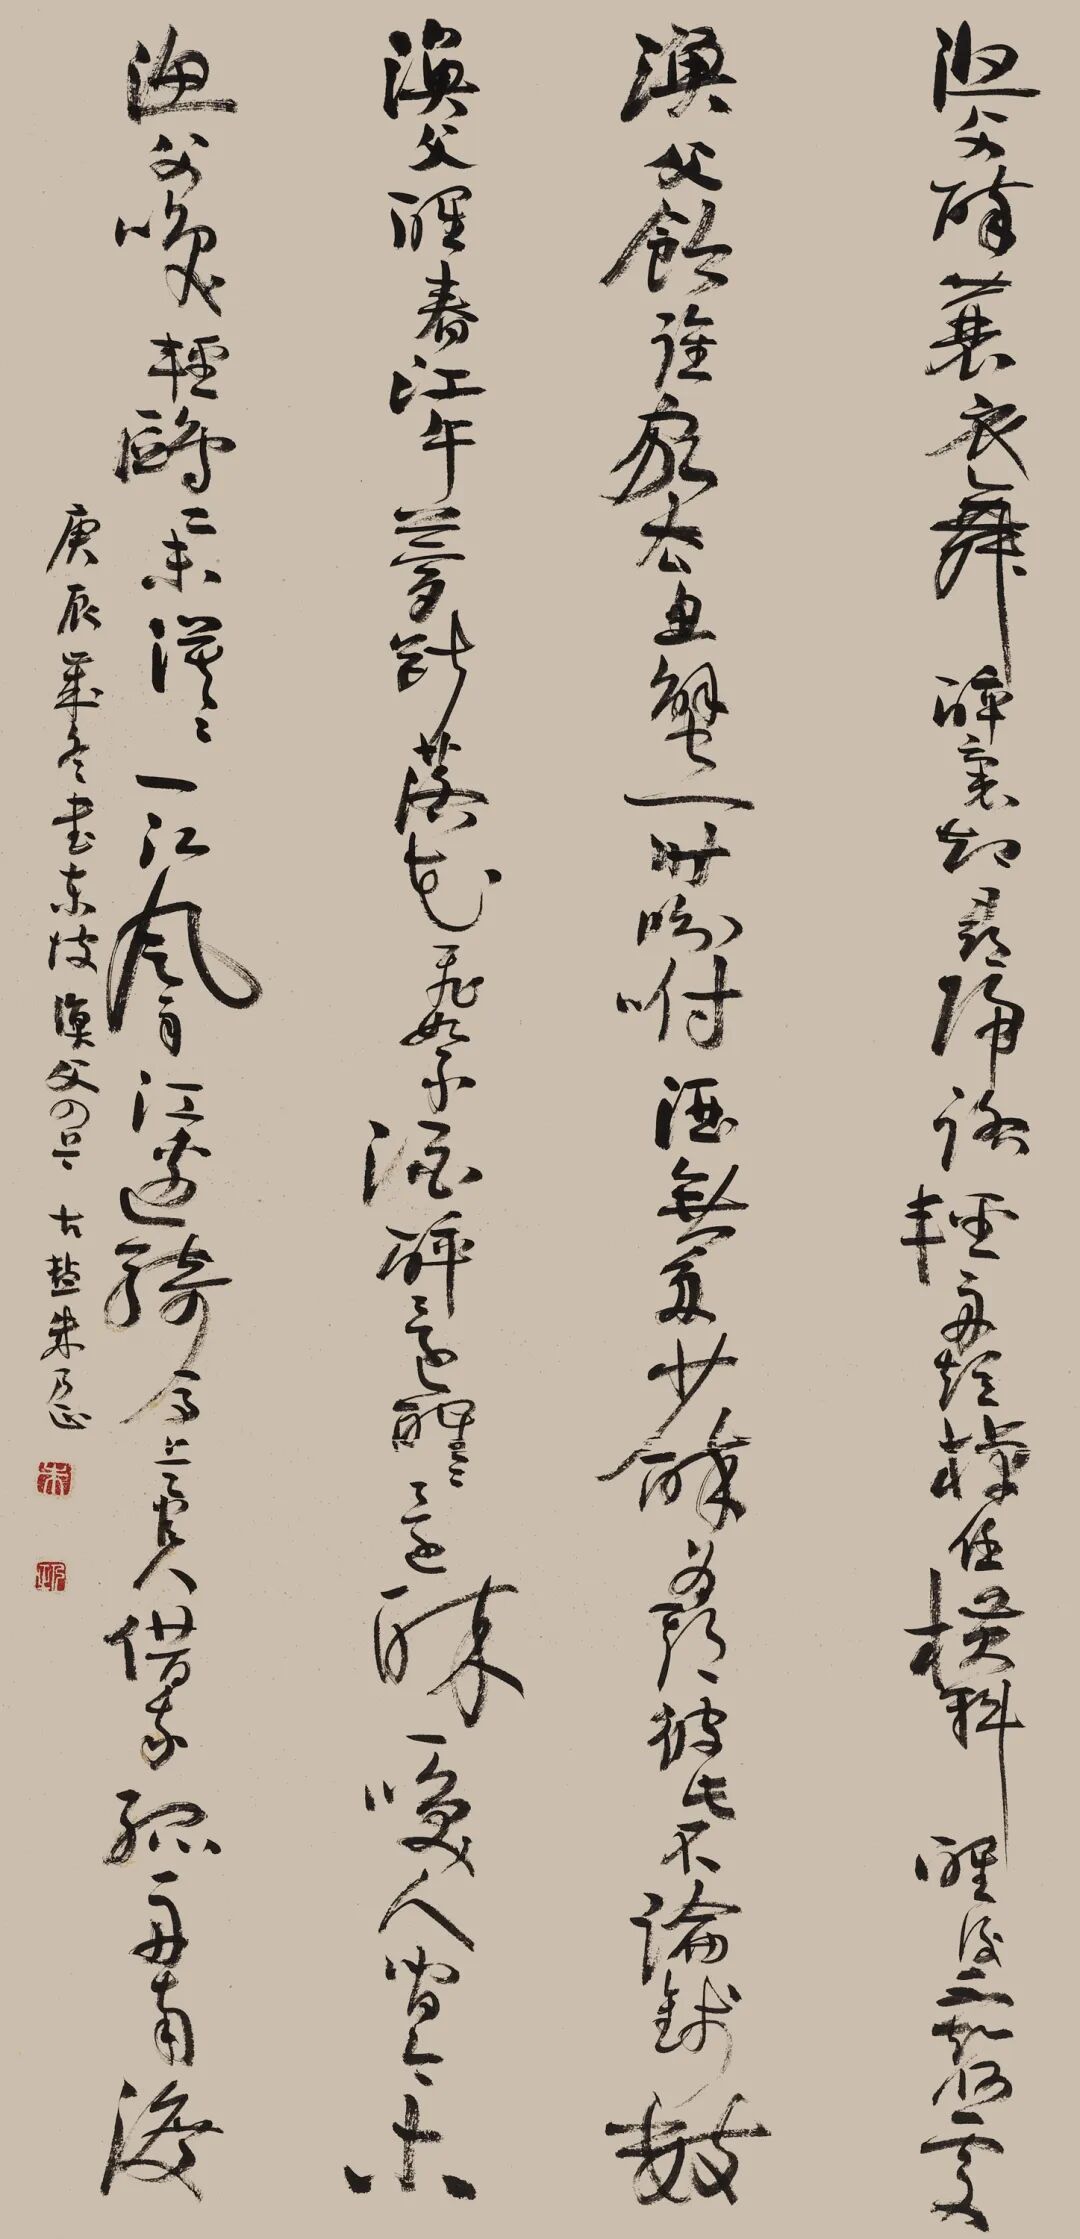 漁父醉蓑衣舞醉裏却尋歸路輕舟短棹任橫斜醒後不知何處
漁父飲誰家去魚蟹一時分付酒無多少醉為期彼此不論錢數
漁父醒春江午夢斷落花飛絮酒醉還醒〻還醉一咲人間今古
漁父咲輕鷗舉漠〻一江風雨江邊騎馬是官人借我孤舟南渡
庚辰歲冬書東坡漁父四首 古盐朱乃正
朱